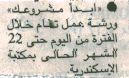 «ابدأ مشروعك»
ورشة عمل تقام خلال
الفترة من اليوم حتى 22
الشهر الحالى بمكتبة
الإسكندرية